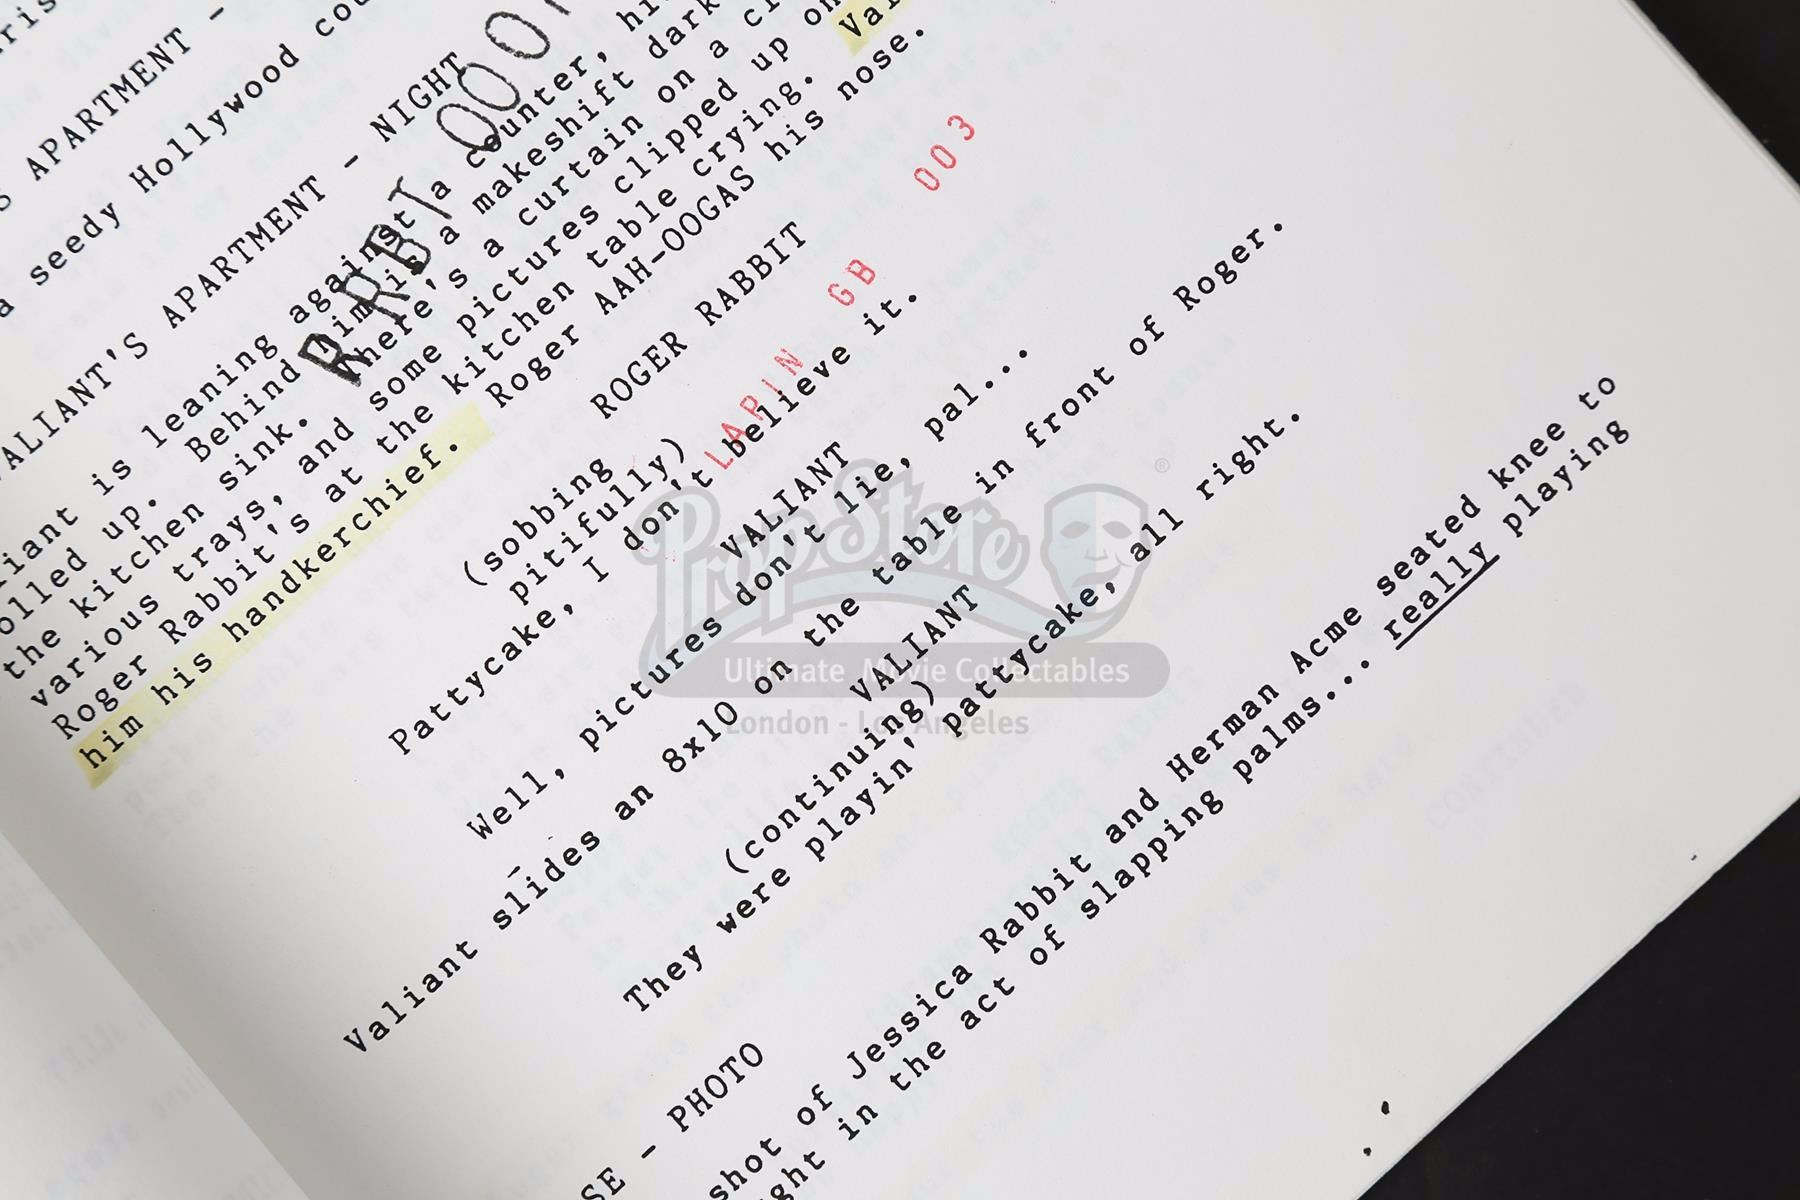 APARTMENT -
a seedy Hollywood
VALIANT'S APARTMENT - NIGHT
is leaning against a counter,
up. Behind him is a makeshift
the kitchen sink. There's a curtain on a
various trays, and some pictures clipped up on
Roger Rabbit's at the kitchen table crying.
him his handkerchief. Roger AAH-OOGAS his nose.
RRBT 000
003
LAPIN GB
ROGER RABBIT
(sobbing
pitifully)
Pattycake, I don't believe it.
VALIANT
Well, pictures don't lie, pal...
Valiant slides an 8x10 on the table in front of Roger.
VALIANT
(continuing)
They were playin' pattycake, all right.
- PHOTO
shot of Jessica Rabbit and Herman Acme seated knee to
in the act of slapping palms... really playing
Prop Store
®
Ultimate Movie Collectables
London - Los Angeles